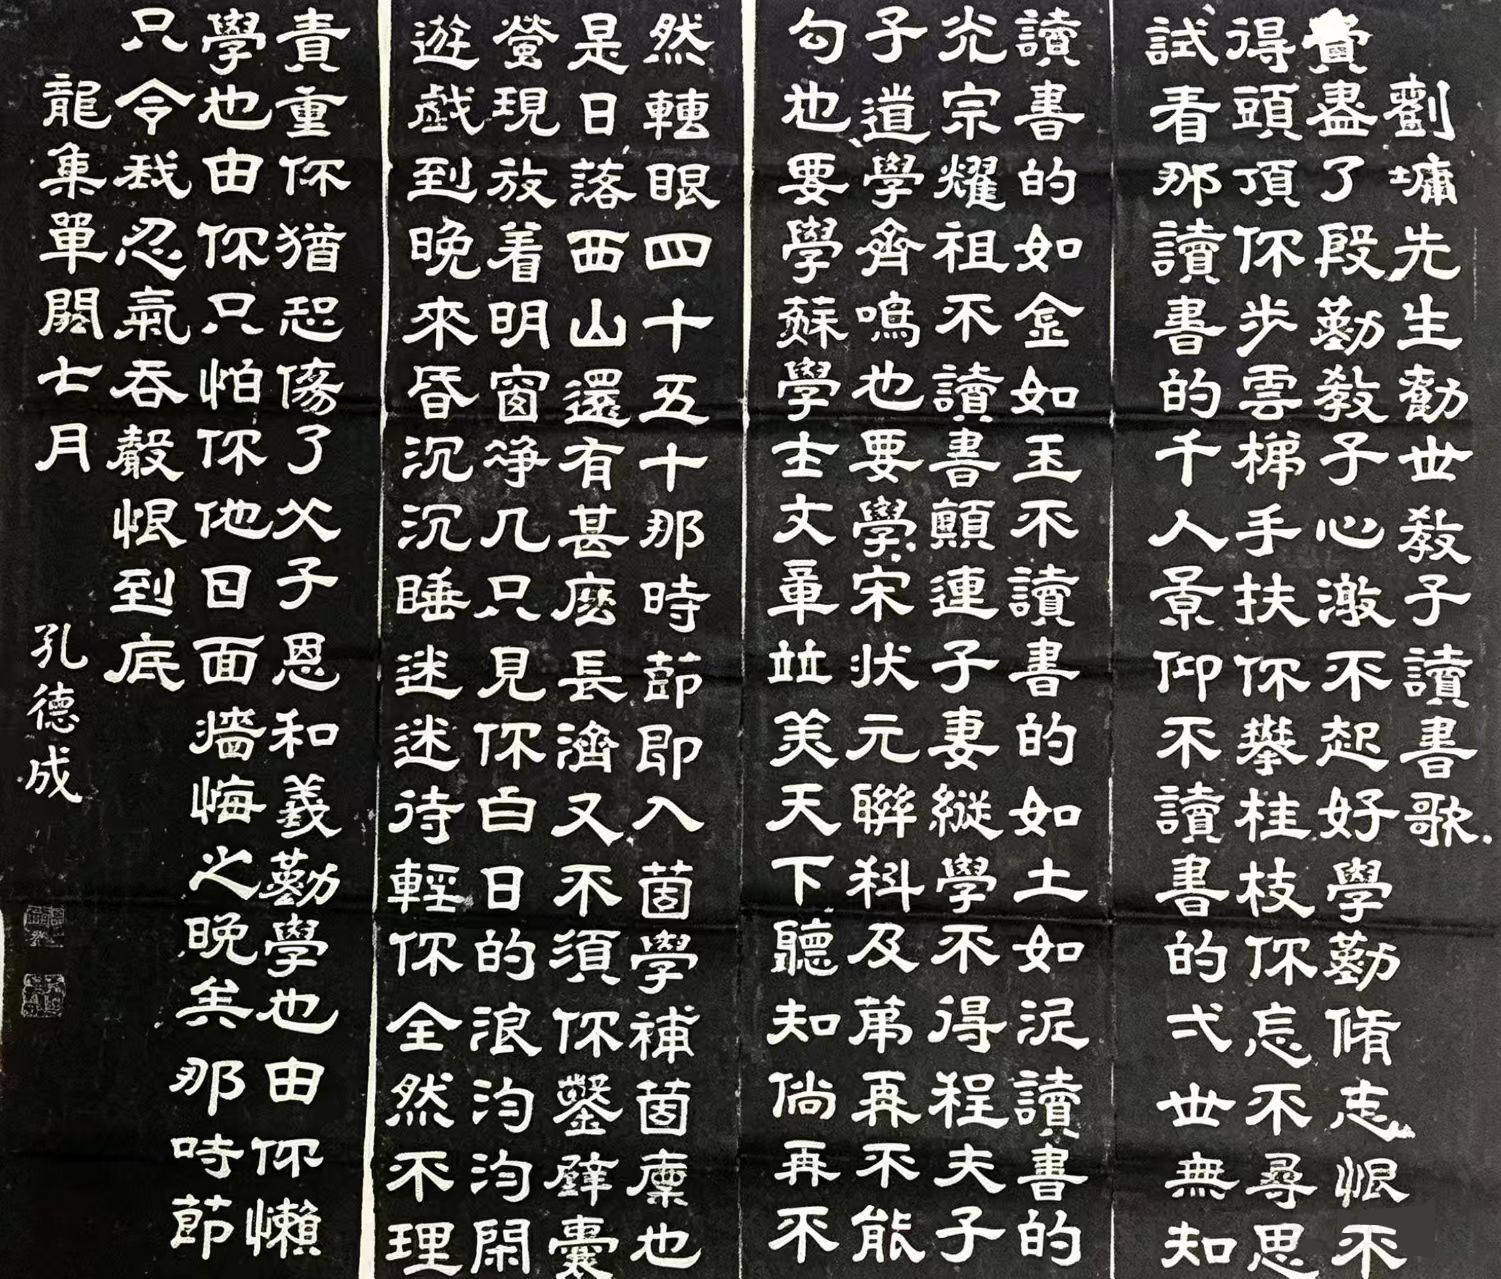 劉墉先生勸世教子讀書歌
費盡了殷勤教子心激不起好學勤脩志恨不
得頭頂你步雲梯手扶你攀桂枝你忘不尋思
試看那讀書的千人景仰不讀書的弌世無知
讀書的如金如玉不讀書的如土如泥讀書的
光宗耀祖不讀書顛連子妻縱學不得程夫子
子道學齊鳴也要學宋狀元聯科及第再不能
勾也要學蘇學士文章並美天下聽知倘再不
然轉眼四十五十那時節即入箇學補箇廩也
是日落西山還有甚麽長濟又不須你鑿壁囊
螢現放着明窗凈几只見你白日的浪汮汮閑
遊戲到晚來昏沉沉睡迷迷待輕你全然不理
責重你猶恐傷了父子恩和義勤學也由你懶
學也由你只怕你他日面墻悔之晚矣那時節
只令我忍氣吞聲恨到底
龍集單閼七月 孔德成